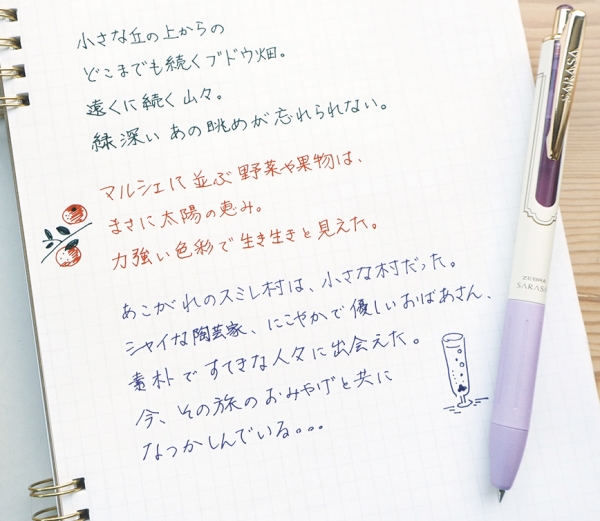 小さな丘の上からの
どこまでも続くブドウ畑。
遠くに続く山々。
緑深いあの眺めが忘れられない。
マルシェに並ぶ野菜や果物は、
まさに太陽の恵み。
力強い色彩で生き生きと見えた。
あこがれのスミレ村は、小さな村だった。
シャイな陶芸家、にこやかで優しいおばあさん、
素朴ですてきな人々に出会えた。
今、その旅のおみやげと共に
なつかしんでいる。。。
SARASA
ZEBRA
SARASA